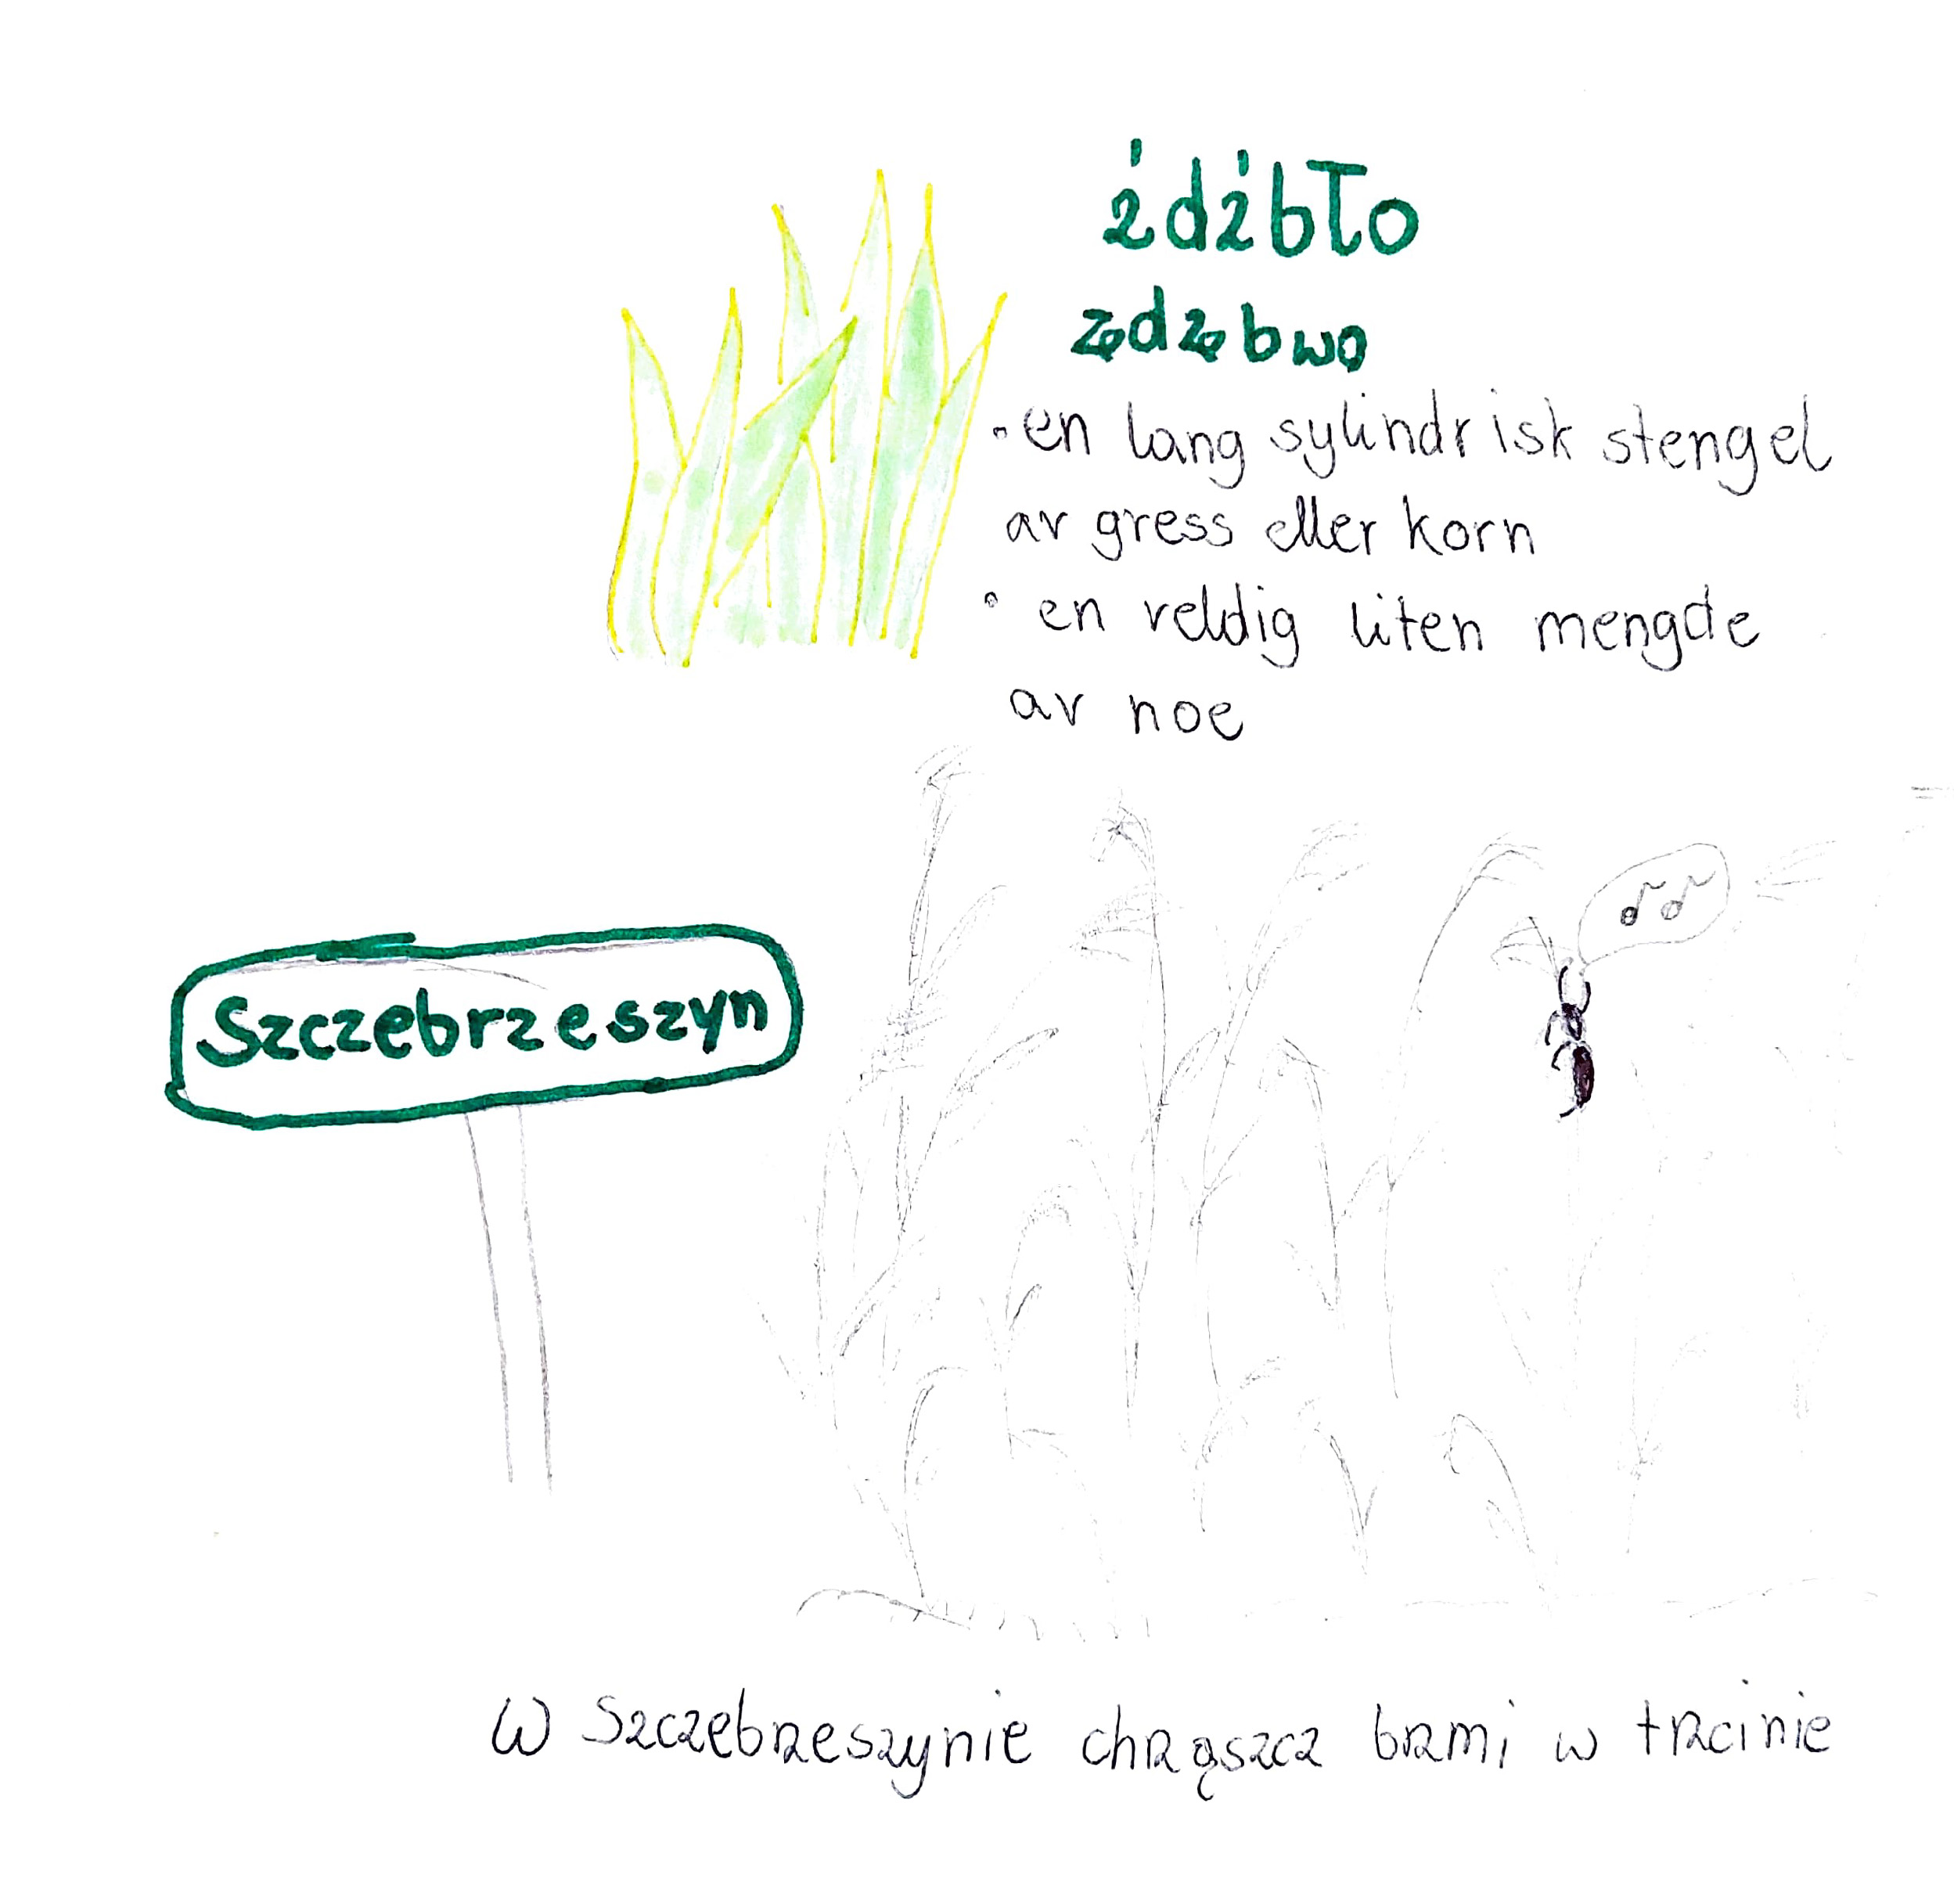 źdźbło
zdzbwo
• en lang sylindrisk stengel
av gress eller korn
• en veldig liten mengde
av noe
Szczebrzeszyn
W Szczebrzeszynie chrząszcz brzmi w trzcinie